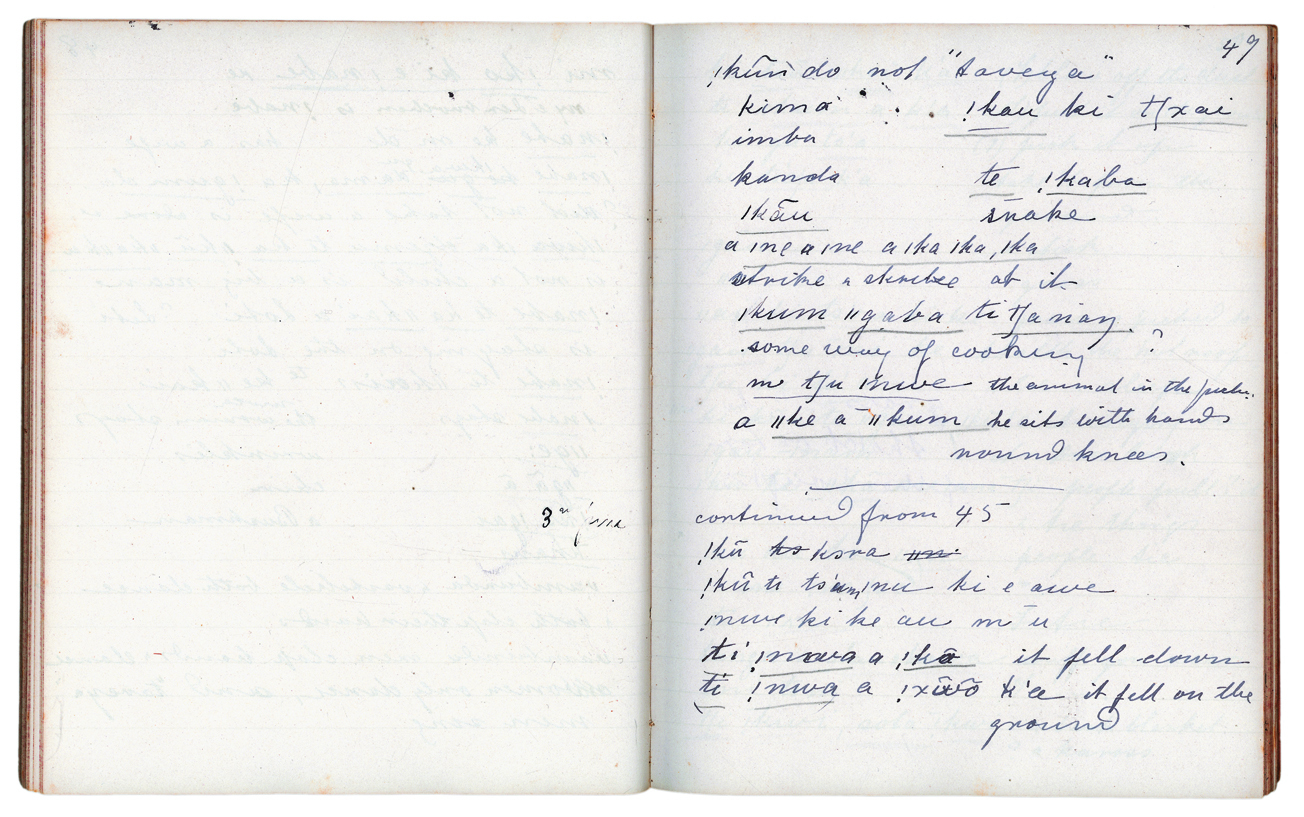 3
49
!kũn do not "taveya"
kima !kau ki tʃxai
imba
kanda te !kaba
ǀkāu snake
a ǀne a ǀne a ǀka ǀka, ǀka
strike a at it
ǀkum ǁgaba ti tʃanaŋ.
some way of cooking ?
m tʃu ǀnwe the animal in the
a ǁke a ǁkum he sits with hands
round knees.
continued from 45
!kū ko ksra
!kū ti nu ki e awe
ǀnwe ki ke au m u
ti !nwa a !kō it fell down
ti !nwa a !xwō ti'a it fell on the
ground